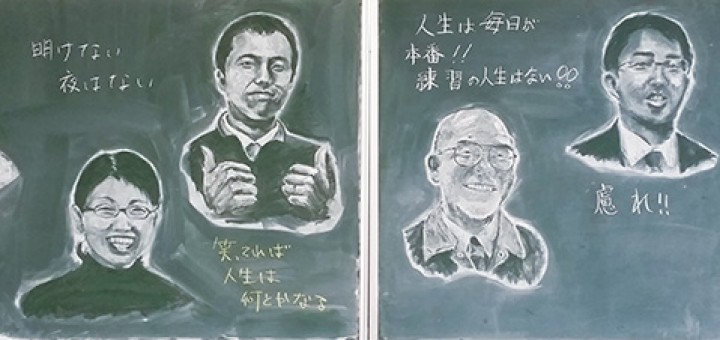 明けない
夜はない
笑っていれば
人生は
何とかなる
人生は毎日が
本番!!
練習の人生はない!!
慮れ!!